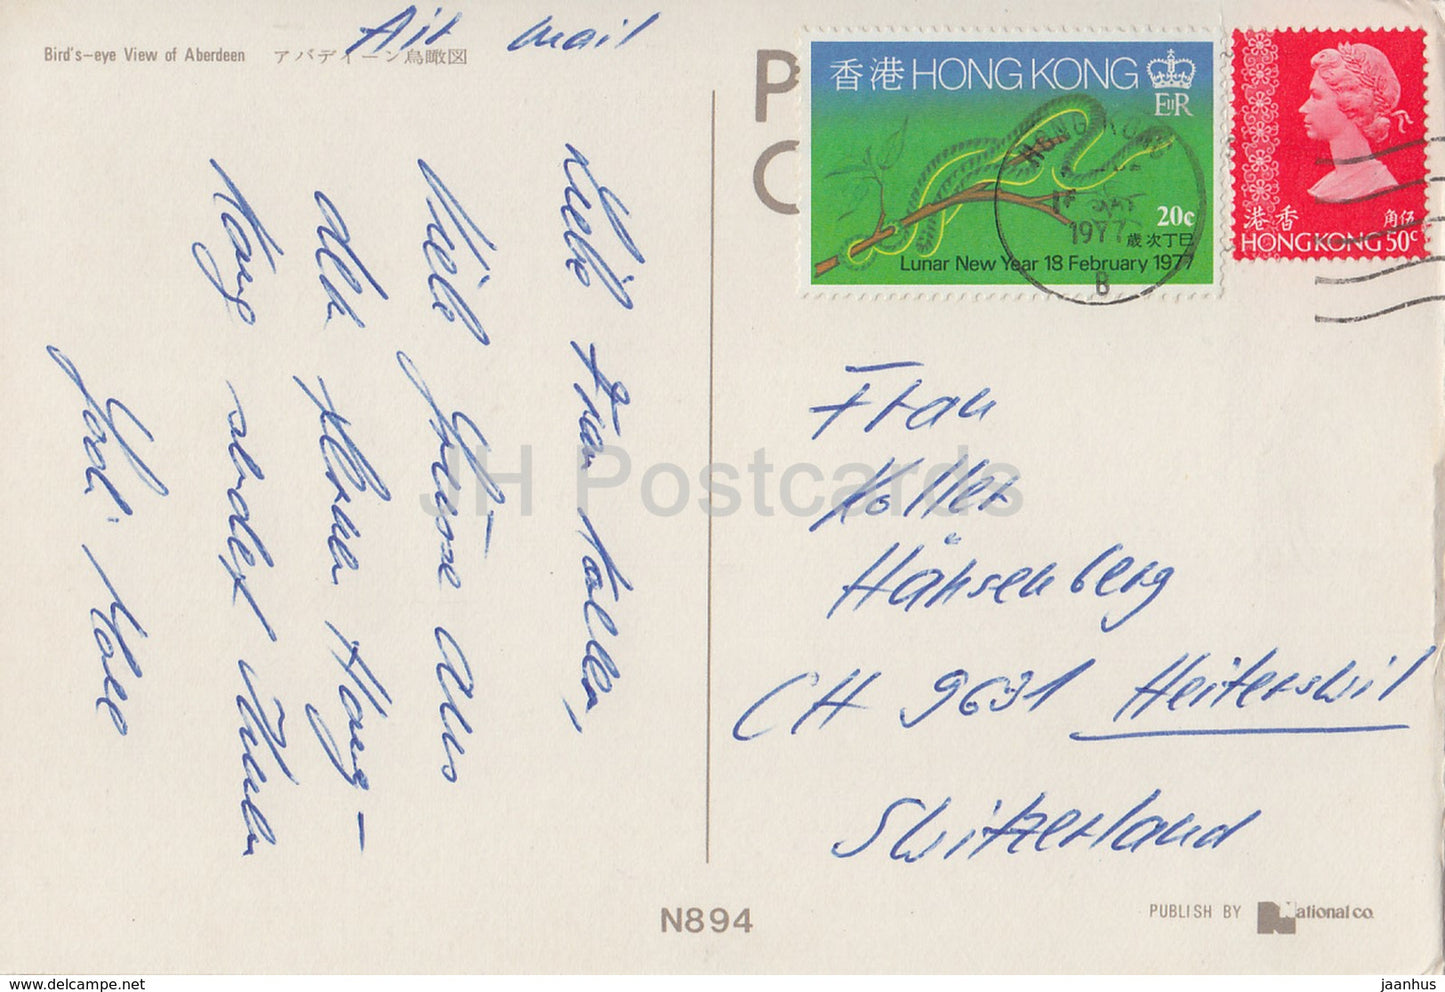 Air mail
Bird's-eye View of Aberdeen アバディーン鳥瞰図
香港 HONG KONG
EIIR
20c
歲次丁巳
Lunar New Year 18 February 1977
港香 角伍
HONG KONG 50c
HONG KONG
1977
B
P
C
Liebe Frau Koller,
Viele Grüsse aus
dem Hong-
Kong sendet Ihnen
Frau
Koller
Hänsenberg
CH 9631 Heiterswil
Switzerland
JH Postcards
N894
PUBLISH BY National co.
delcampe.net
jaanhus